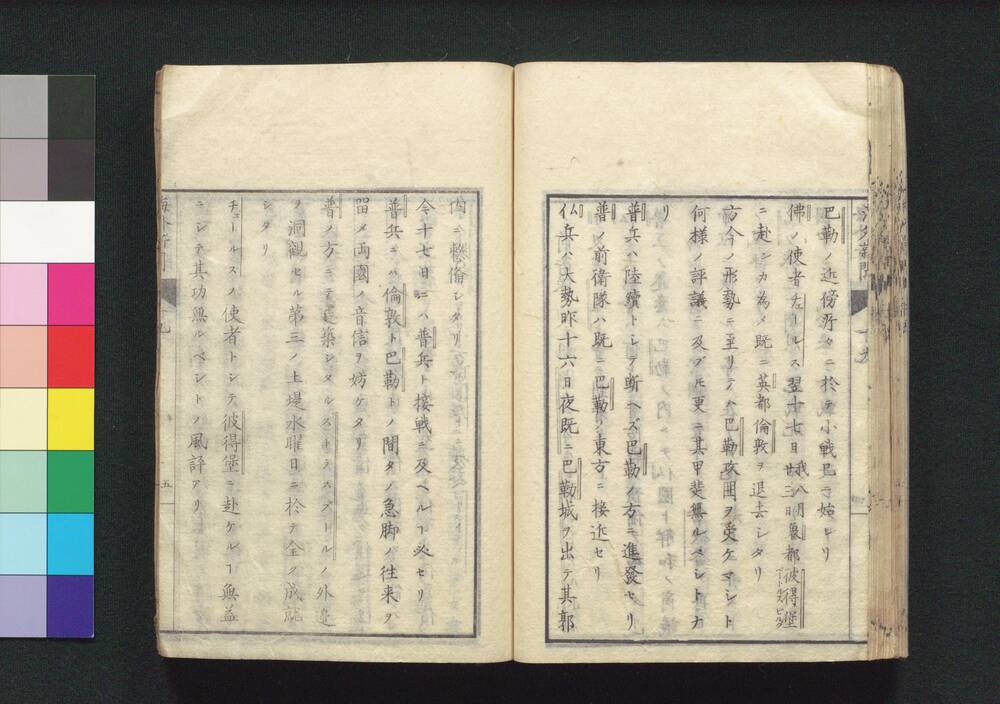 巴勒ノ近傍所々ニ於テ小戦已ニ始レリ
佛ノ使者チェールス翌十七日我八月廿三日魯都彼得堡ペートルスビュルグ
ニ赴ンカ為メ既ニ英都倫敦ヲ退去シタリ
方今ノ形勢ニ至リテハ巴勒攻囲ヲ受ケマシト
何様ノ評議ニ及ブ𪜈更ニ其甲斐無ルベシトナ
リ
普兵ハ陸續トシテ断ヘズ巴勒ノ方ニ進發セリ
普ノ前衛隊ハ既ニ巴勒ノ東方ニ接近セリ
仏兵ハ大勢昨十六日夜既ニ巴勒城ヲ出テ其郭
内ニ整備シタリ
今十七日ニハ普兵ト接戦ニ及ベルヿ必セリ
普兵ニハ倫敦ト巴勒トノ間タノ急脚ノ往来ヲ
留メ両國ノ音信ヲ妨ケタリ
普ノ方ニテ建築シタルスタラスブールノ外邊
ヲ洞観セル第三ノ土堤水曜日ニ於テ全ク成就
シタリ
チェールスノ使者トシテ彼得堡ニ赴ケルヿ無益
ニシテ其功無ルベシトノ風評アリ
五